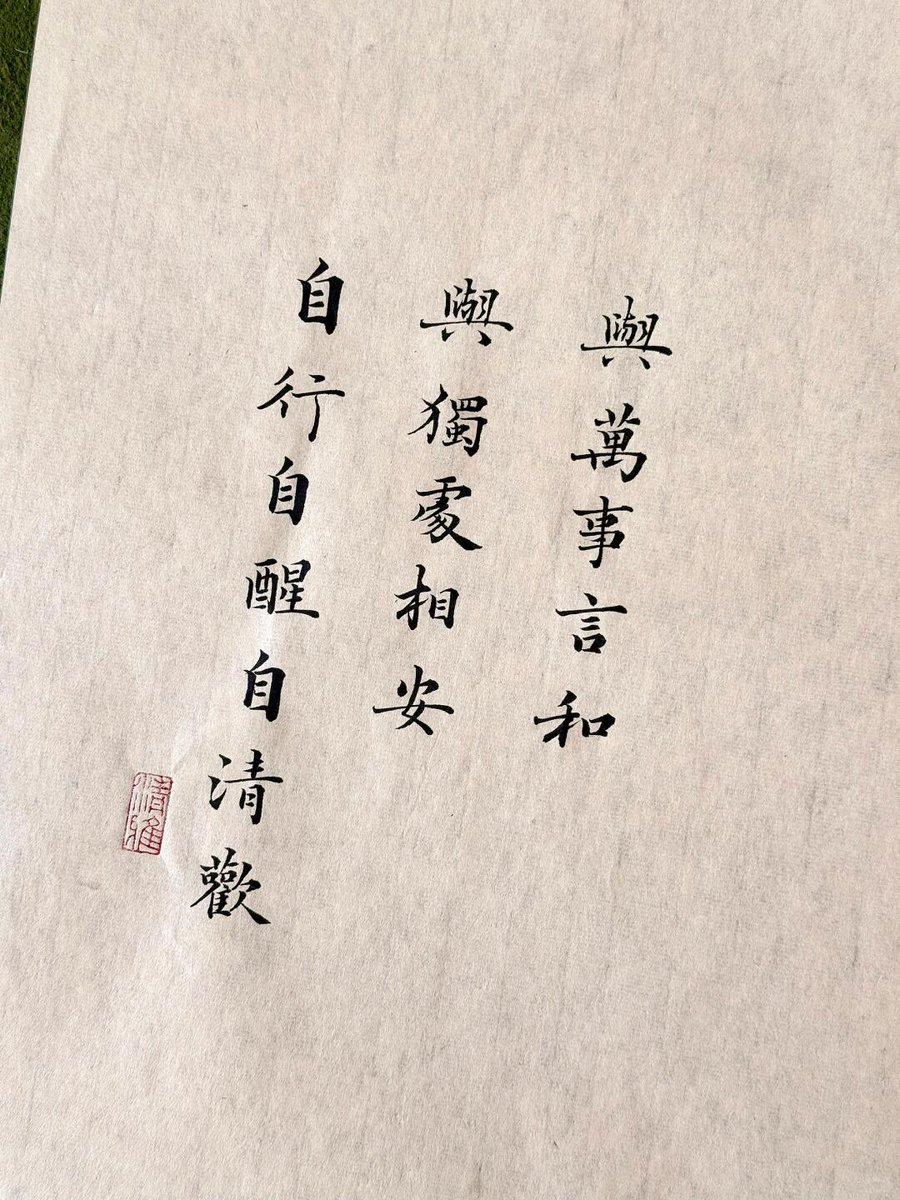 與萬事言和
與獨處相安
自行自醒自清歡